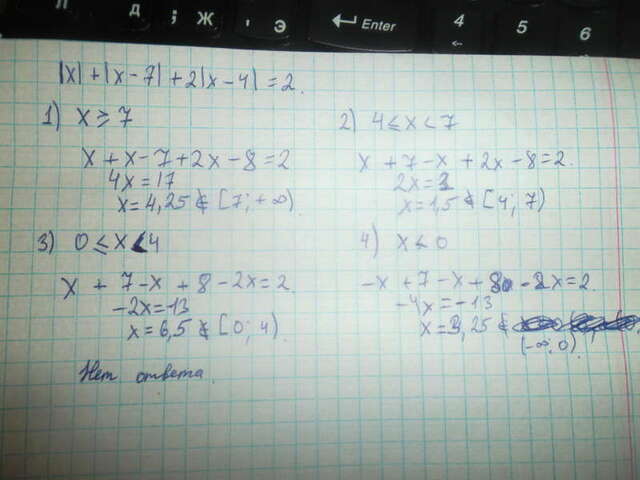 Л Д ; Ж ' Э Enter 4 ← 5 6 ←
|x| + |x - 7| + 2|x - 4| = 2.
1) x ⩾ 7
x + x - 7 + 2x - 8 = 2
4x = 17
x = 4,25 ∉ [7; +∞)
2) 4 ≤ x < 7
x + 7 - x + 2x - 8 = 2.
2x = 3
x = 1,5 ∉ [4; 7)
3) 0 ≤ x < 4
x + 7 - x + 8 - 2x = 2.
-2x = -13
x = 6,5 ∉ [0; 4)
4) x < 0
-x + 7 - x + 8 - 2x = 2.
-4x = -13
x = 3,25 ∉
(-∞; 0)
Нет ответа.